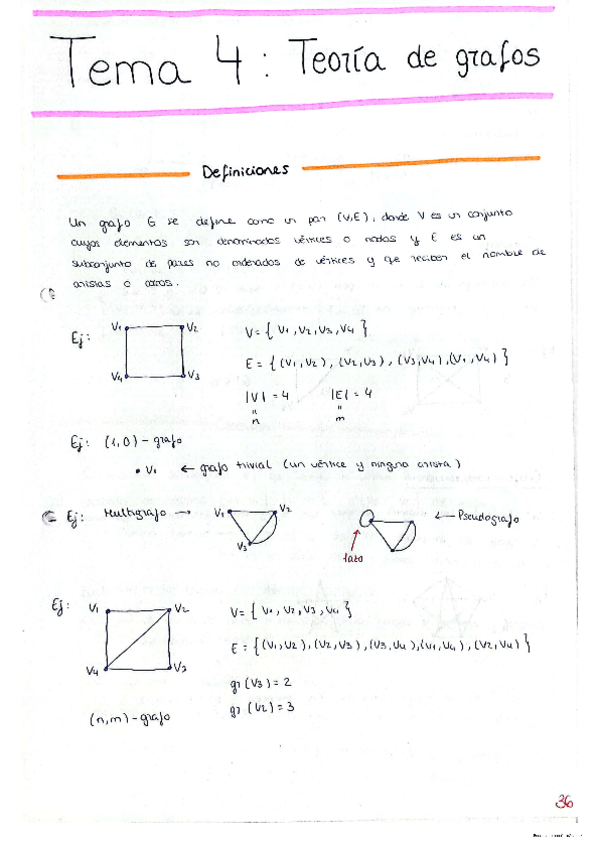 Tema 4 : Teoría de grafos
Definiciones
Un grafo G se define como un par (V,E), donde V es un conjunto
cuyos elementos son denominados vértices o nodos y E es un
subconjunto de pares no ordenados de vértices y que reciben el nombre de
aristas o arcos.
Ej: V₁ V₂ V₄ V₃
V = { V₁, V₂, V₃, V₄ }
E = { (V₁, V₂), (V₂, V₃), (V₃, V₄), (V₁, V₄) }
|V| = 4 |E| = 4
" "
n m
Ej: (1,0) - grafo
• V₁ ← grafo trivial (un vértice y ninguna arista)
Ej: Multigrafo → V₁ V₂ V₃ ← Pseudografo
lazo
Ej: V₁ V₂ V₄ V₃
V = { V₁, V₂, V₃, V₄ }
E = { (V₁, V₂), (V₂, V₃), (V₃, V₄), (V₁, V₄), (V₂, V₄) }
gr (V₃) = 2
gr (V₂) = 3
(n,m) - grafo
36